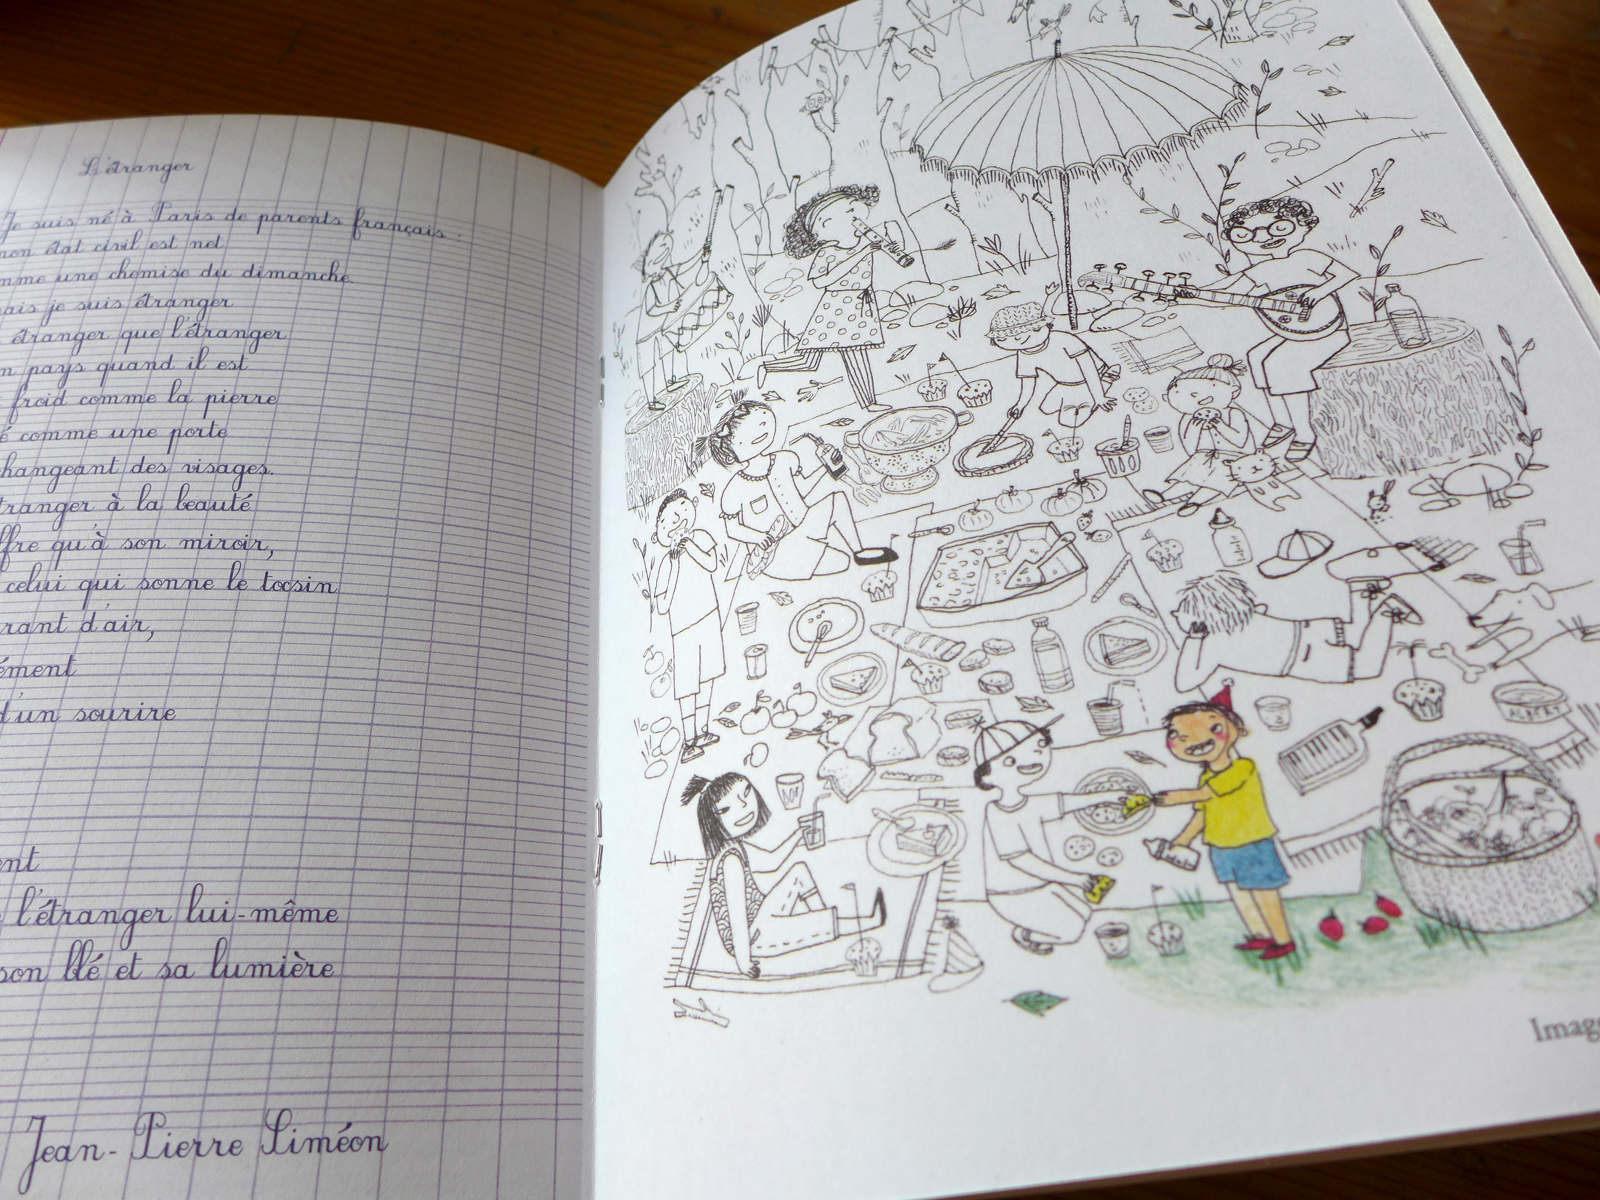 L'étranger
Je suis né à Paris de parents français
mon état civil est net
comme une chemise du dimanche.
mais je suis étranger
étranger que l'étranger
pays quand il est
froid comme la pierre
comme une porte
changeant des visages.
étranger à la beauté
qu'à son miroir,
celui qui sonne le tocsin
d'air,
d'un sourire
l'étranger lui-même
son blé et sa lumière
Jean-Pierre Siméon
ALBERT